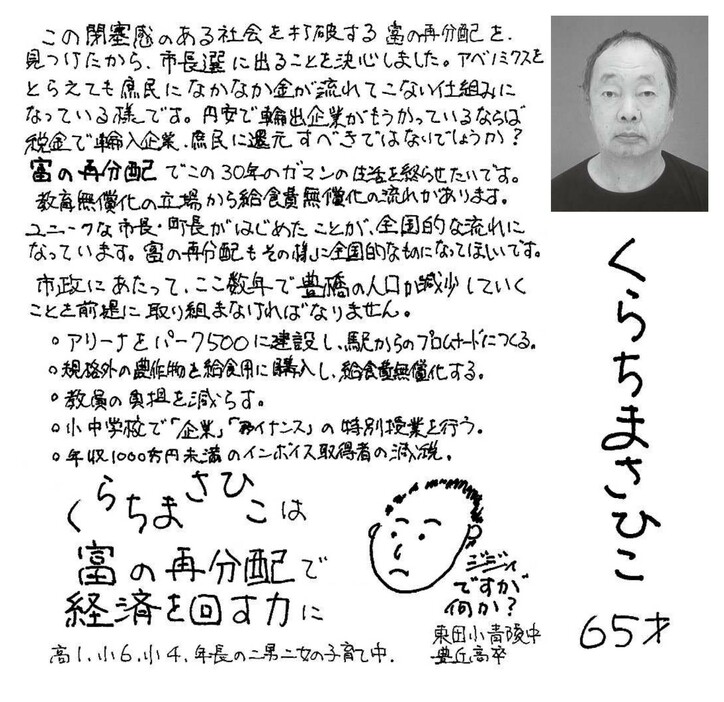 この閉塞感のある社会を打破する富の再分配を、
見つけたから、市長選に出ることを決心しました。アベノミクスを
とらえても庶民になかなか金が流れてこない仕組みに
なっている様です。円安で輸出企業がもうかっているならば
税金で輸入企業、庶民に還元すべきではないでしょうか？
富の再分配でこの30年のガマンの生活を終らせたいです。
教育無償化の立場から給食費無償化の流れがあります。
ユニークな市長・町長がはじめたことが、全国的な流れに
なっています。富の再分配もその様に全国的なものになってほしいです。
市政にあたって、ここ数年で豊橋の人口が減少していく
ことを前提に取り組まなければなりません。
○アリーナをパーク500に建設し、駅からのプロムナードにつくる。
○規格外の農作物を給食用に購入し、給食費無償化する。
○教員の負担を減らす。
○小中学校で「企業」「ファイナンス」の特別授業を行う。
○年収1000万円未満のインボイス取得者の減税。
くらちまさひこは
富の再分配で
経済を回す力に
高1、小6、小4、年長の二男二女の子育て中．
ジジイ
ですが
何か？
東田小青陵中
豊丘高卒
くらちまさひこ
65才